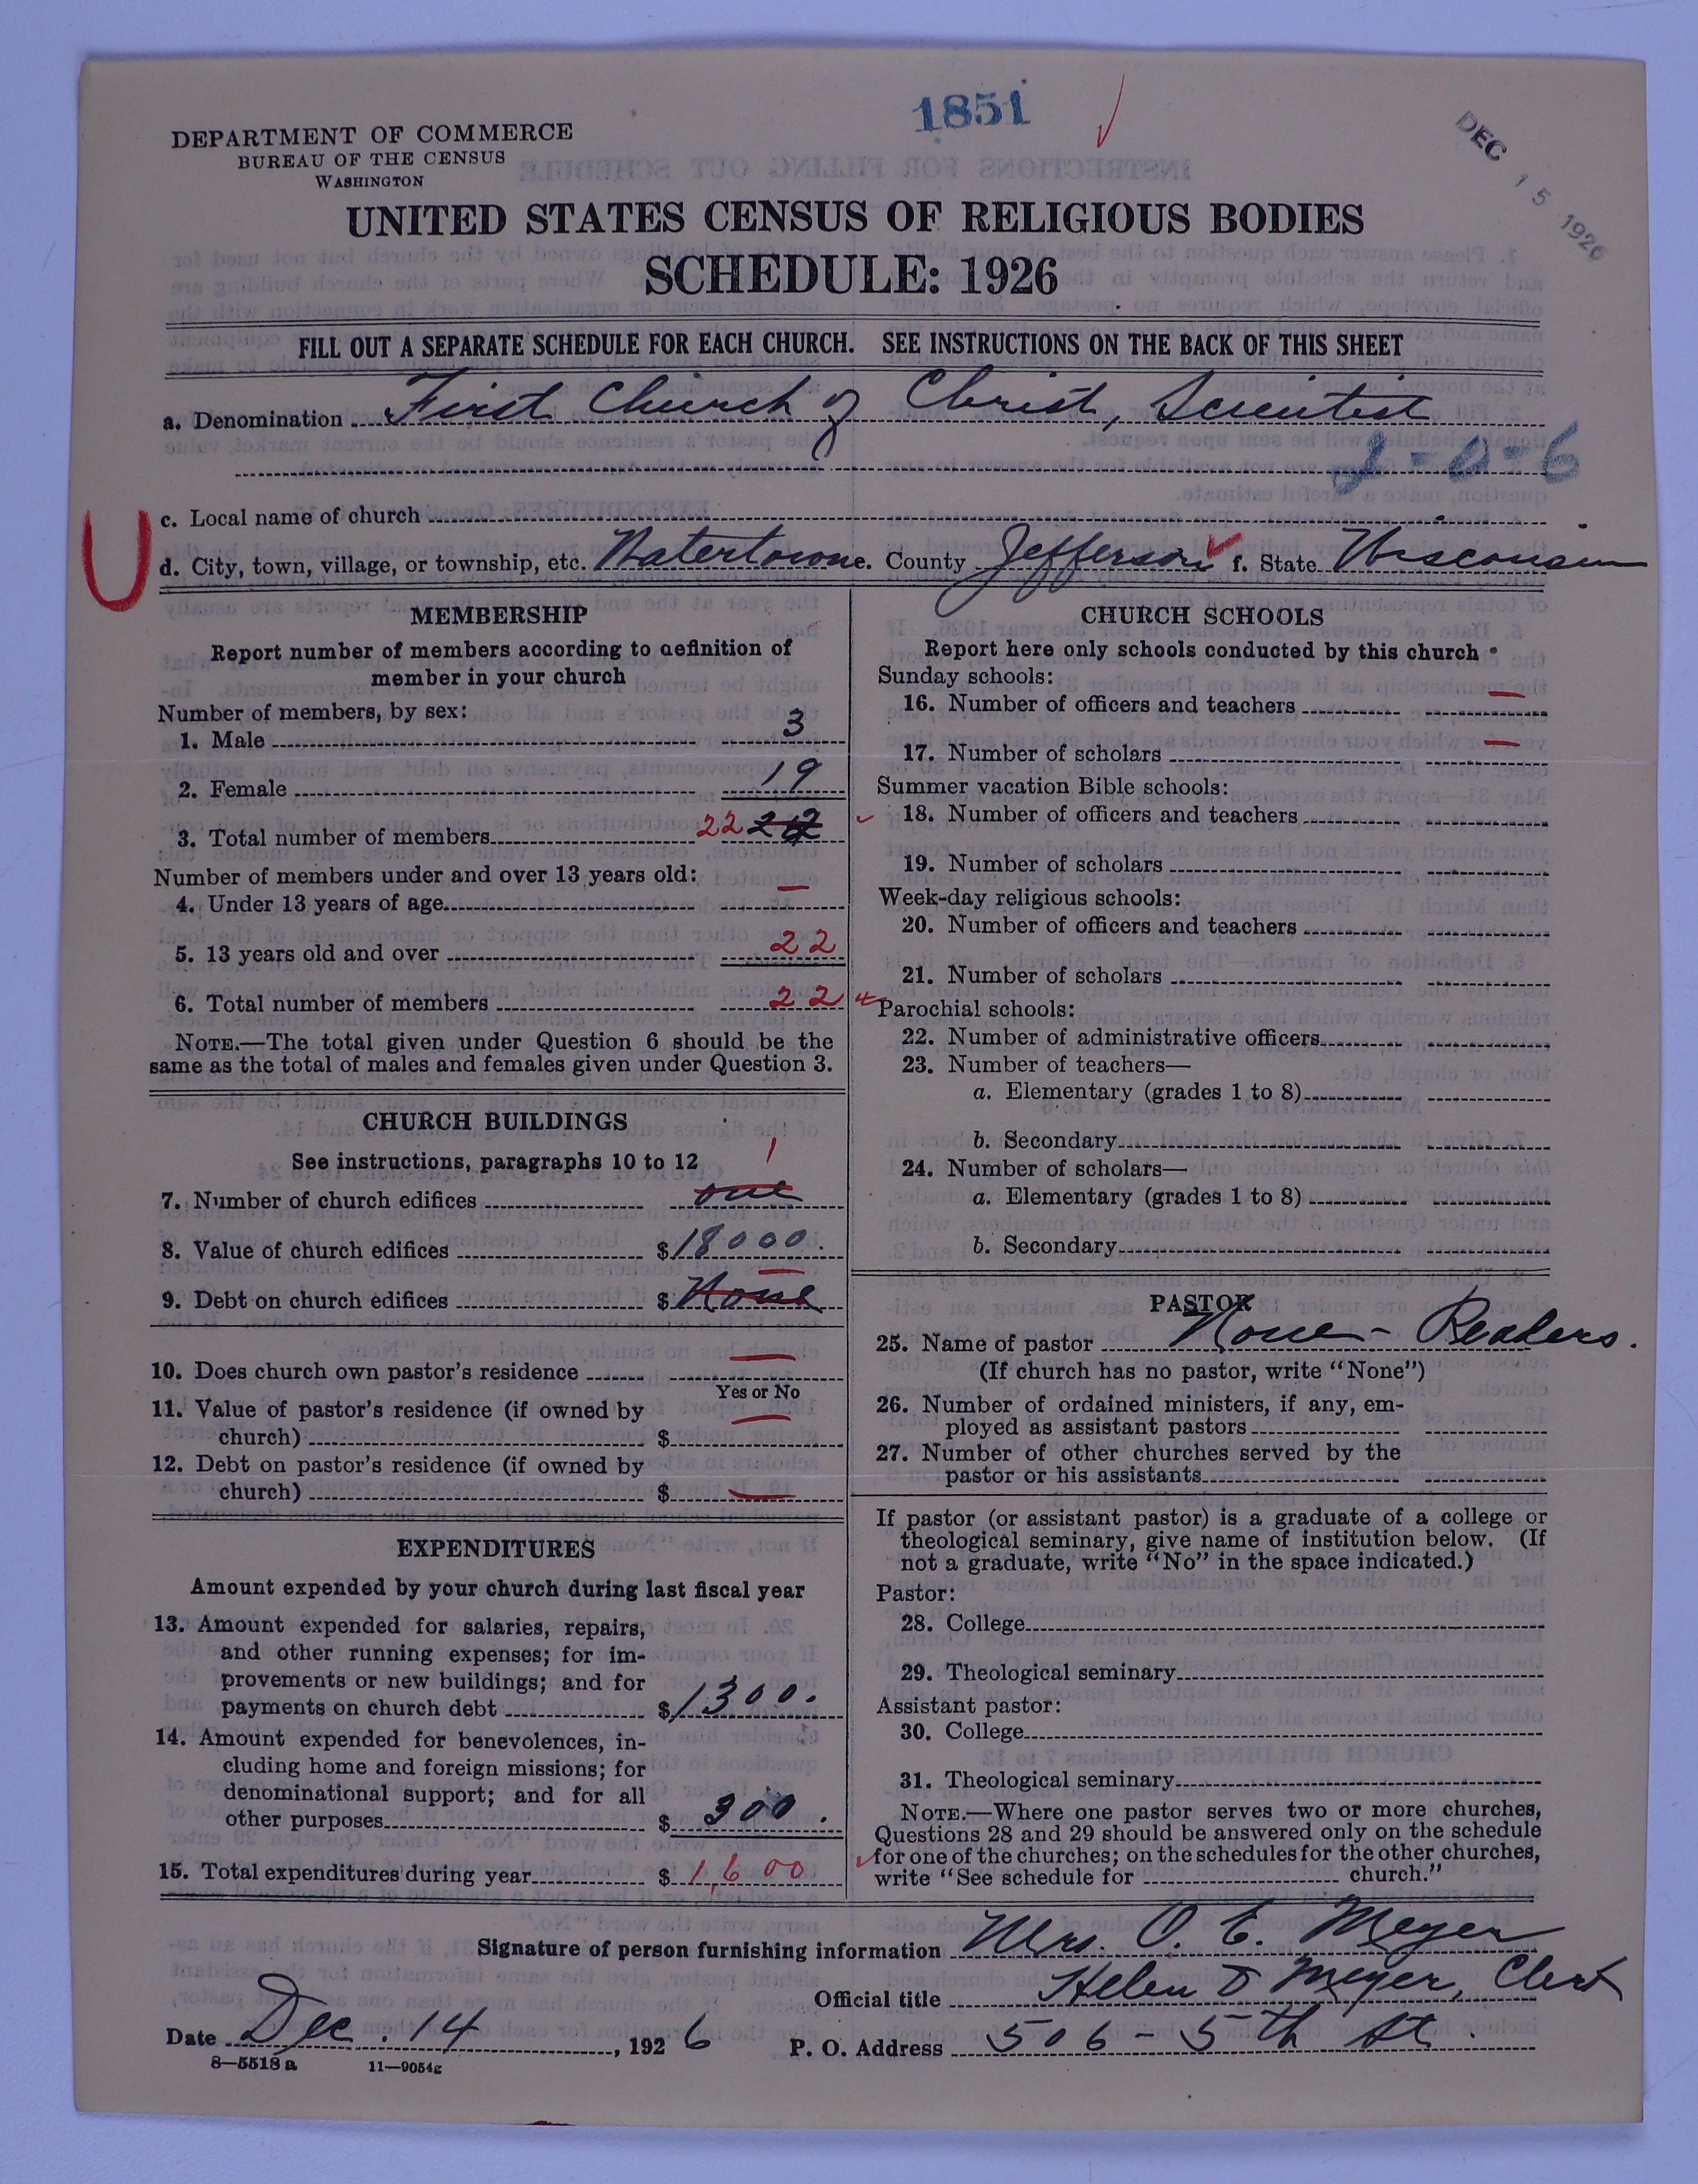 1851
DEC 15 1926
DEPARTMENT OF COMMERCE
BUREAU OF THE CENSUS
WASHINGTON
UNITED STATES CENSUS OF RELIGIOUS BODIES
SCHEDULE: 1926
FILL OUT A SEPARATE SCHEDULE FOR EACH CHURCH. SEE INSTRUCTIONS ON THE BACK OF THIS SHEET
a. Denomination First Church of Christ, Scientist
2-0-6
c. Local name of church
U
d. City, town, village, or township, etc. Watertown e. County Jefferson f. State Wisconsin
MEMBERSHIP
Report number of members according to definition of
member in your church
Number of members, by sex:
1. Male 3
2. Female 19
3. Total number of members 22
Number of members under and over 13 years old:
4. Under 13 years of age —
5. 13 years old and over 22
6. Total number of members 22
NOTE.—The total given under Question 6 should be the
same as the total of males and females given under Question 3.
CHURCH BUILDINGS
See instructions, paragraphs 10 to 12
1
7. Number of church edifices one
8. Value of church edifices $18000.
9. Debt on church edifices $ None
10. Does church own pastor's residence —
Yes or No
11. Value of pastor's residence (if owned by
church) $ —
12. Debt on pastor's residence (if owned by
church) $ —
EXPENDITURES
Amount expended by your church during last fiscal year
13. Amount expended for salaries, repairs,
and other running expenses; for im-
provements or new buildings; and for
payments on church debt $1300.
14. Amount expended for benevolences, in-
cluding home and foreign missions; for
denominational support; and for all
other purposes $ 300.
15. Total expenditures during year $ 1,600
CHURCH SCHOOLS
Report here only schools conducted by this church
Sunday schools:
16. Number of officers and teachers —
17. Number of scholars —
Summer vacation Bible schools:
18. Number of officers and teachers
19. Number of scholars
Week-day religious schools:
20. Number of officers and teachers
21. Number of scholars
Parochial schools:
22. Number of administrative officers
23. Number of teachers—
a. Elementary (grades 1 to 8)
b. Secondary
24. Number of scholars—
a. Elementary (grades 1 to 8)
b. Secondary
PASTOR
25. Name of pastor None - Readers.
(If church has no pastor, write "None")
26. Number of ordained ministers, if any, em-
ployed as assistant pastors
27. Number of other churches served by the
pastor or his assistants
If pastor (or assistant pastor) is a graduate of a college or
theological seminary, give name of institution below. (If
not a graduate, write "No" in the space indicated.)
Pastor:
28. College
29. Theological seminary
Assistant pastor:
30. College
31. Theological seminary
NOTE.—Where one pastor serves two or more churches,
Questions 28 and 29 should be answered only on the schedule
for one of the churches; on the schedules for the other churches,
write "See schedule for church."
Signature of person furnishing information Mrs. O. E. Meyer
Official title Helen D Meyer, Clerk
Date Dec. 14, 1926 P. O. Address 506 - 5th St.
8—5518a 11—9054g